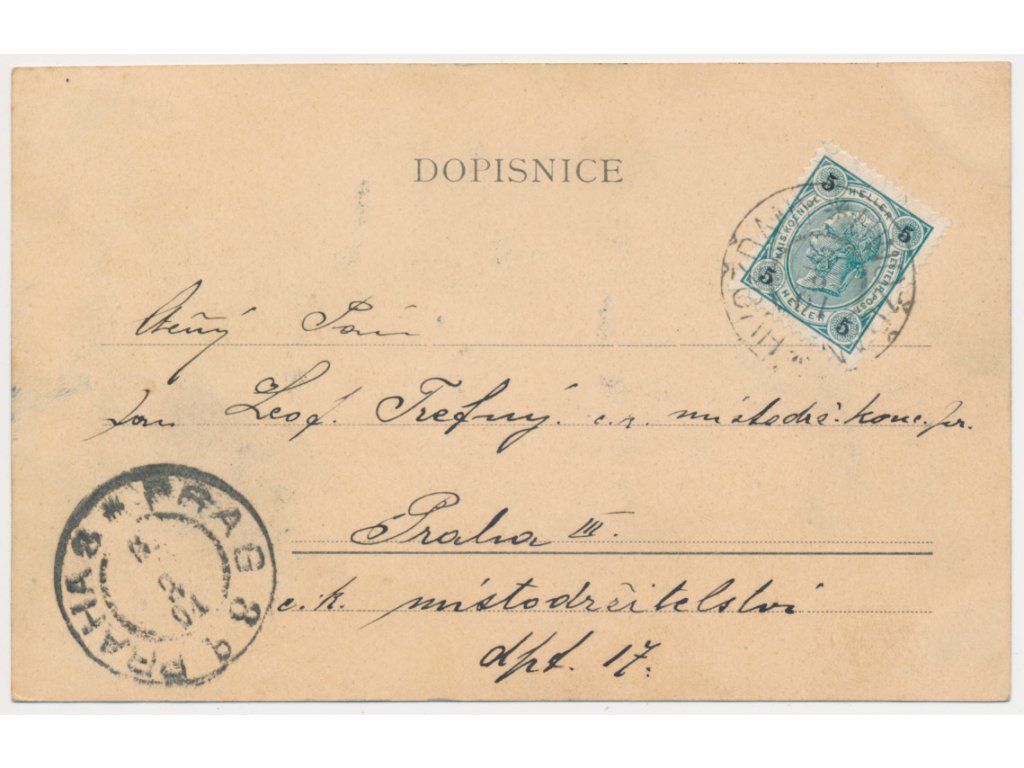 DOPISNICE
5 HELLER 5
KAIS. KOENIGL.
OESTERR. POST
5 HELLER 5
Ctěný Pán
pan Leof. Trefný. c.k. místodrž. konc. pr.
Praha III.
c.k. místodržitelství
dpt. 17.
PRAG 3 PRAHA 3